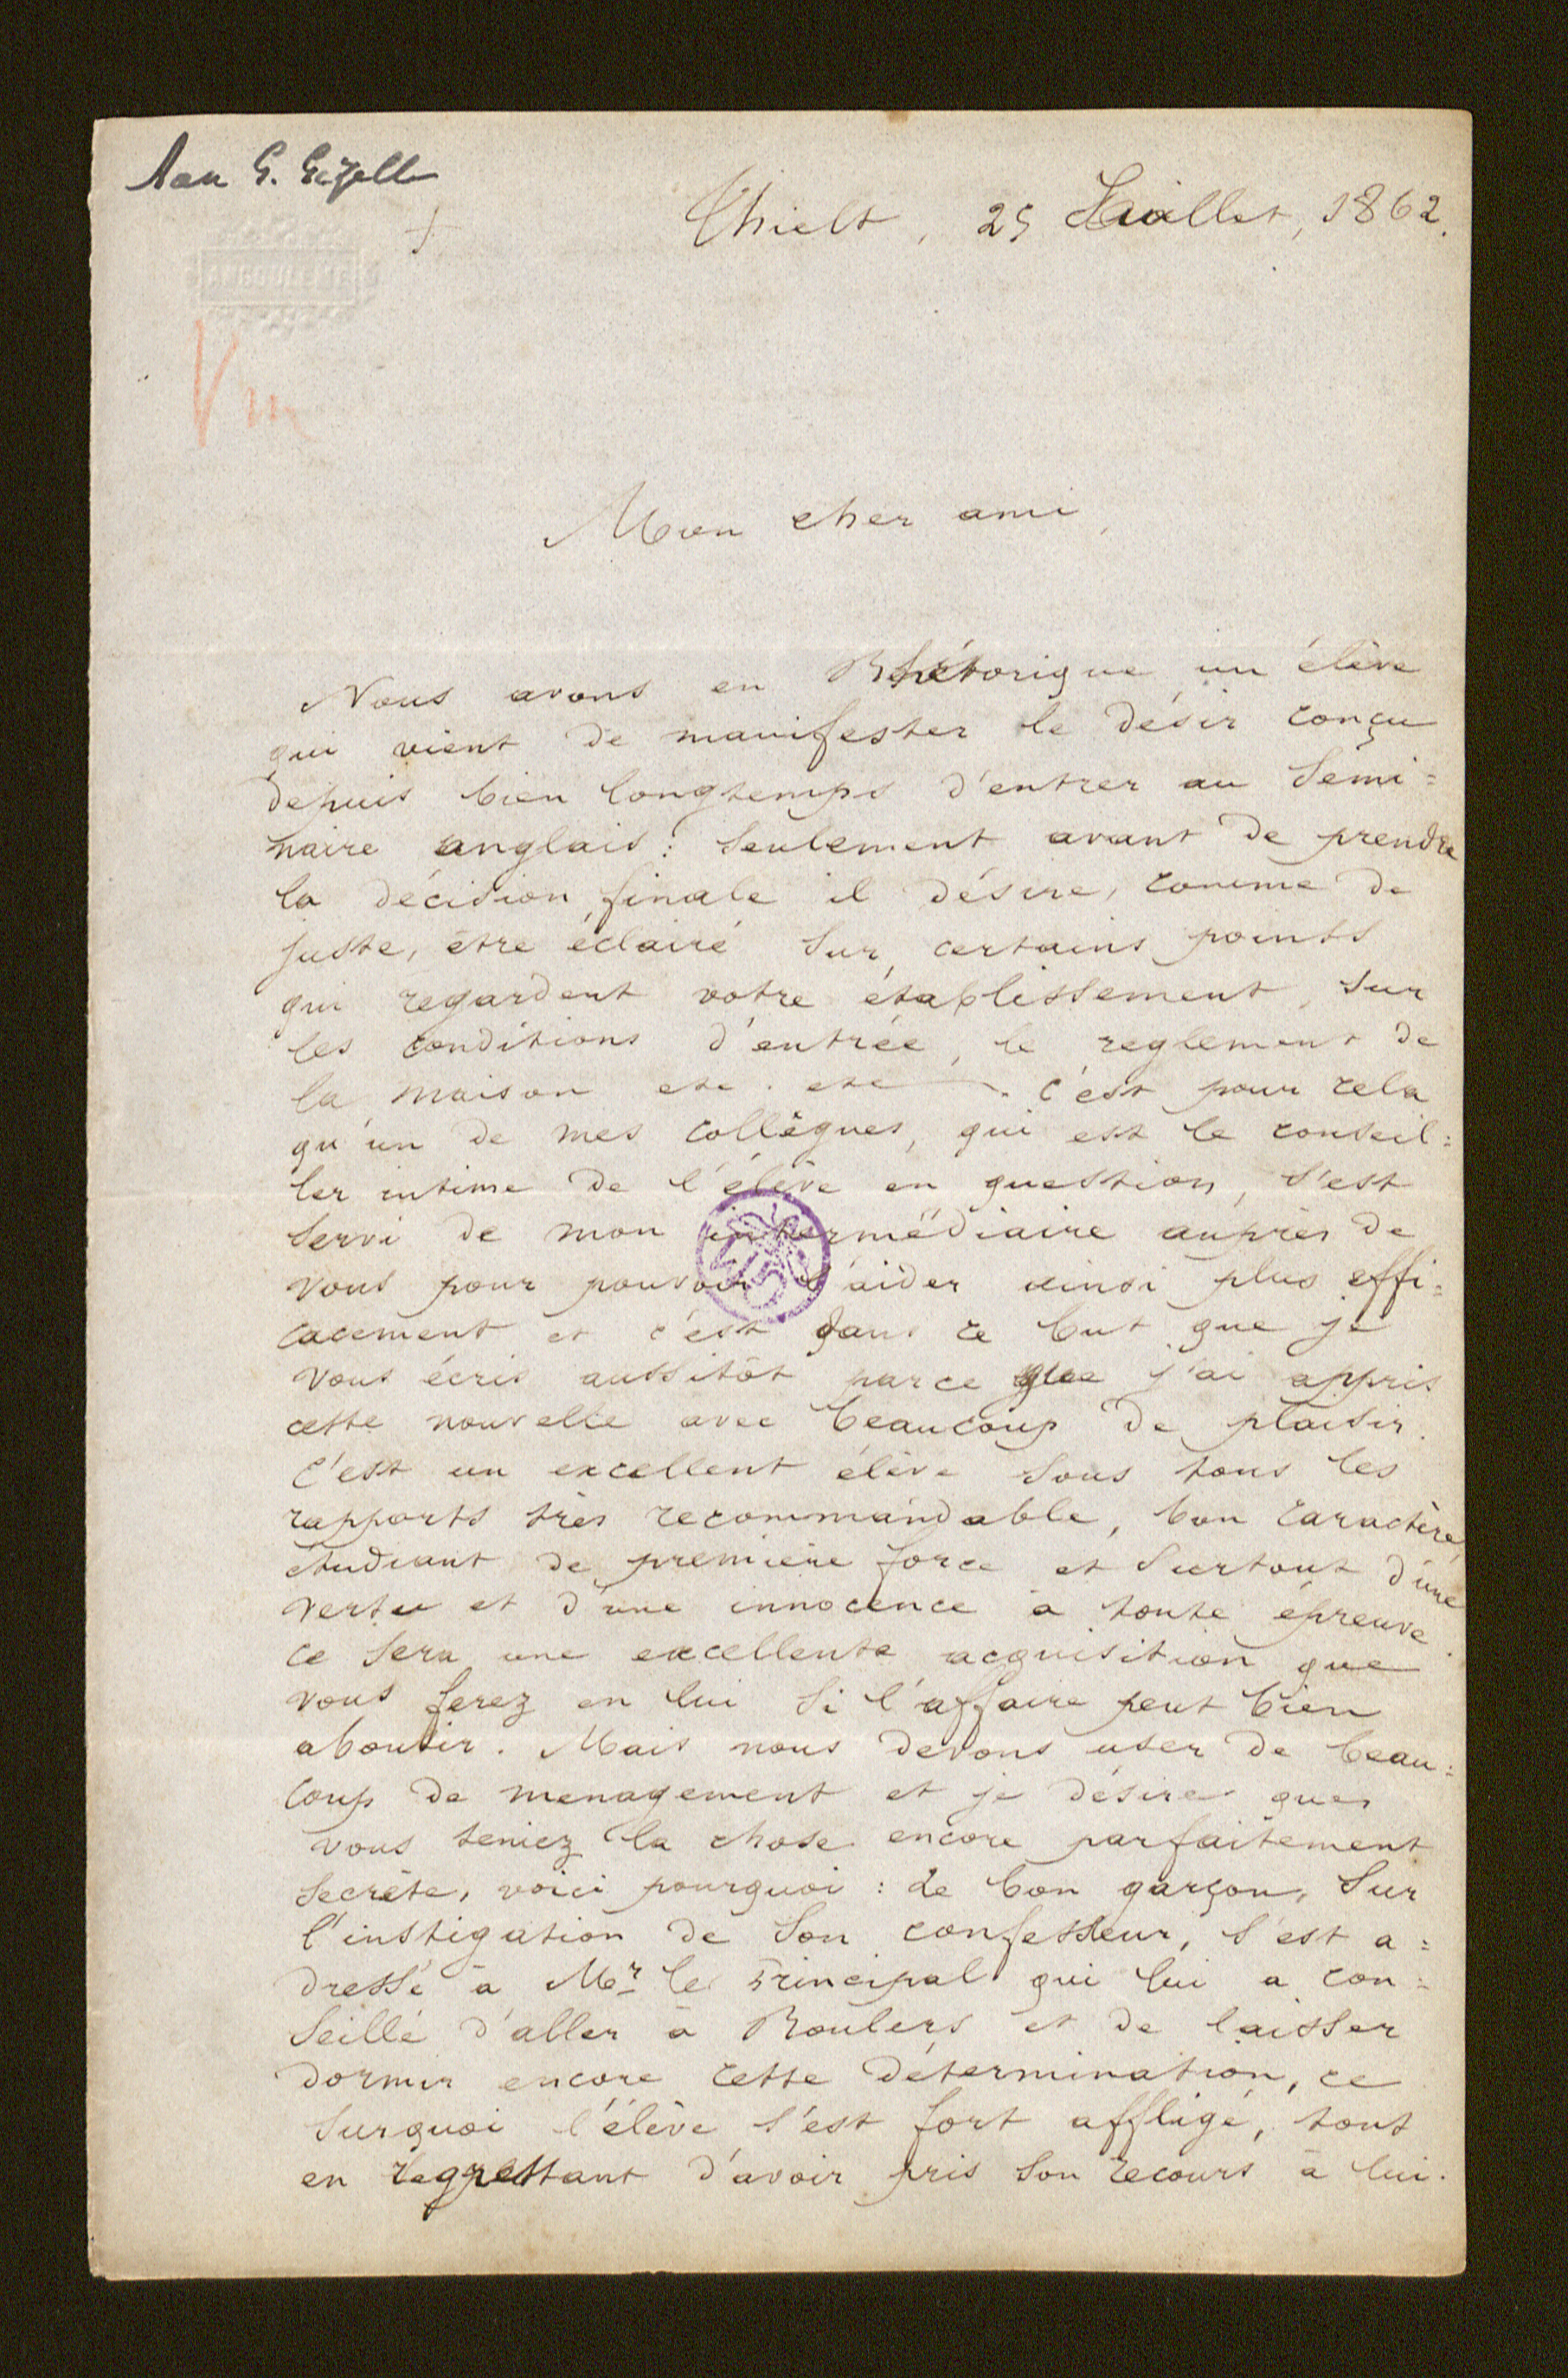 Aan G. Gezelle
+
Thielt, 25 Juillet, 1862.
ANGOULEME
Vm
Mon cher ami,
Nous avons en Rhétorique un élève
qui vient de manifester le désir conçu
depuis bien longtemps d'entrer au Sémi=
naire anglais: seulement avant de prendre
la décision finale il désire, comme de
juste, être éclairé sur certains points
qui regardent votre établissement, sur
les conditions d'entrée, le reglement de
la maison etc. etc. C'est pour cela
qu'un de mes collègues, qui est le conseil=
ler intime de l'élève en question, s'est
servi de mon intermédiaire auprès de
vous pour pouvoir l'aider ainsi plus effi=
cacement et c'est dans ce but que je
vous écris aussitôt parce que j'ai appris
cette nouvelle avec beaucoup de plaisir.
C'est un excellent élève sous tous les
rapports très recommandable, bon caractère,
étudiant de première force et surtout d'une
vertu et d'une innocence à toute épreuve.
Ce sera une excellente acquisition que
vous ferez en lui si l'affaire peut bien
aboutir. Mais nous devons user de beau=
coup de menagement et je désire que
vous teniez la chose encore parfaitement
secrète, voici pourquoi: le bon garçon, sur
l'instigation de son confesseur, s'est a=
dressé à Mr le Principal qui lui a con=
seillé d'aller à Roulers et de laisser
dormir encore cette détermination, ce
surquoi l'élève s'est fort affligé, tout
en regrettant d'avoir pris son recours à lui.